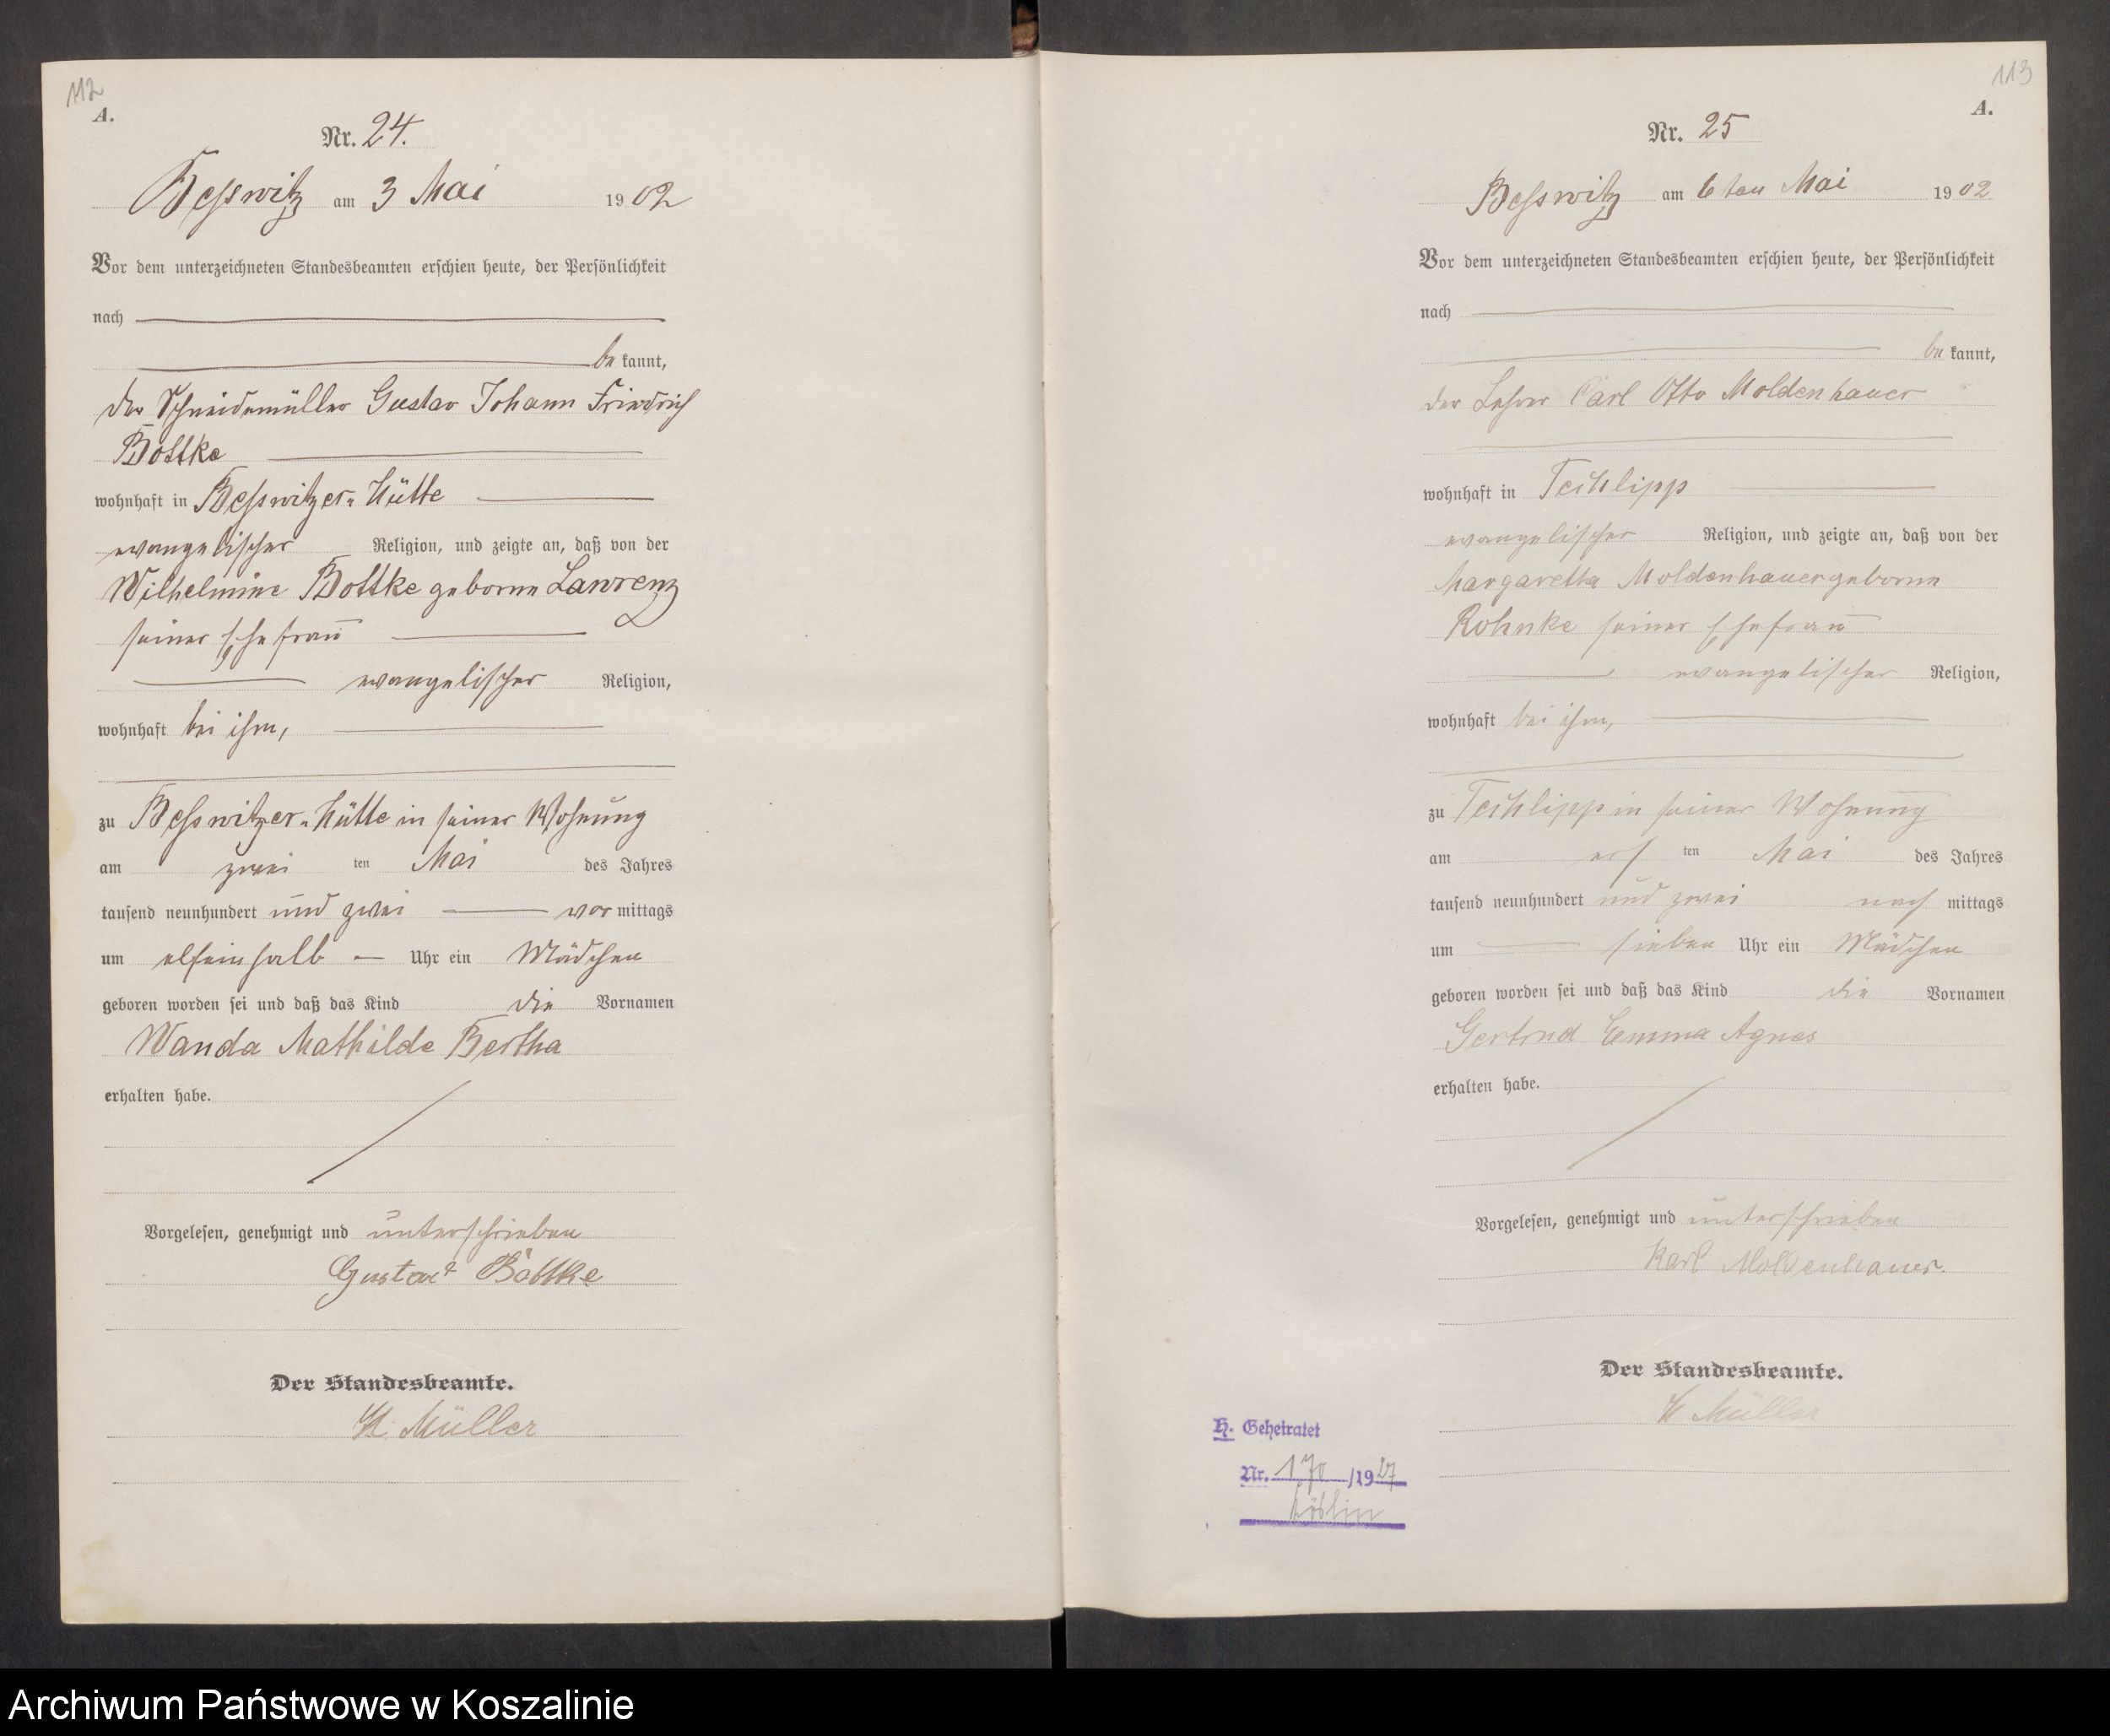 112
A.
Nr. 24.
Besswitz am 3 Mai 1902
Vor dem unterzeichneten Standesbeamten erschien heute, der Persönlichkeit
nach
be kannt,
der Schneidemüller Gustav Johann Friedrich
Bottke
wohnhaft in Besswitzer-Hütte
evangelischer Religion, und zeigte an, daß von der
Wilhelmine Bottke geborne Lawrenz
seiner Ehefrau
evangelischer Religion,
wohnhaft bei ihm,
zu Besswitzer-Hütte in seiner Wohnung
am zwei ten Mai des Jahres
tausend neunhundert und zwei vor mittags
um elfeinhalb Uhr ein Mädchen
geboren worden sei und daß das Kind die Vornamen
Wanda Mathilde Bertha
erhalten habe.
Vorgelesen, genehmigt und unterschrieben
Gustav Bottke
Der Standesbeamte.
H. Müller
113
A.
Nr. 25
Besswitz am 6ten Mai 1902.
Vor dem unterzeichneten Standesbeamten erschien heute, der Persönlichkeit
nach
be kannt,
der Lehrer Carl Otto Moldenhauer
wohnhaft in Techlipp
evangelischer Religion, und zeigte an, daß von der
Margaretha Moldenhauer geborne
Rohnke seiner Ehefrau
evangelischer Religion,
wohnhaft bei ihm,
zu Techlipp in seiner Wohnung
am ers ten Mai des Jahres
tausend neunhundert und zwei nach mittags
um sieben Uhr ein Mädchen
geboren worden sei und daß das Kind die Vornamen
Gertrud Emma Agnes
erhalten habe.
Vorgelesen, genehmigt und unterschrieben
Karl Moldenhauer.
Der Standesbeamte.
H Müller
H. Geheiratet
Nr. 170 /1927
Köslin
Archiwum Państwowe w Koszalinie